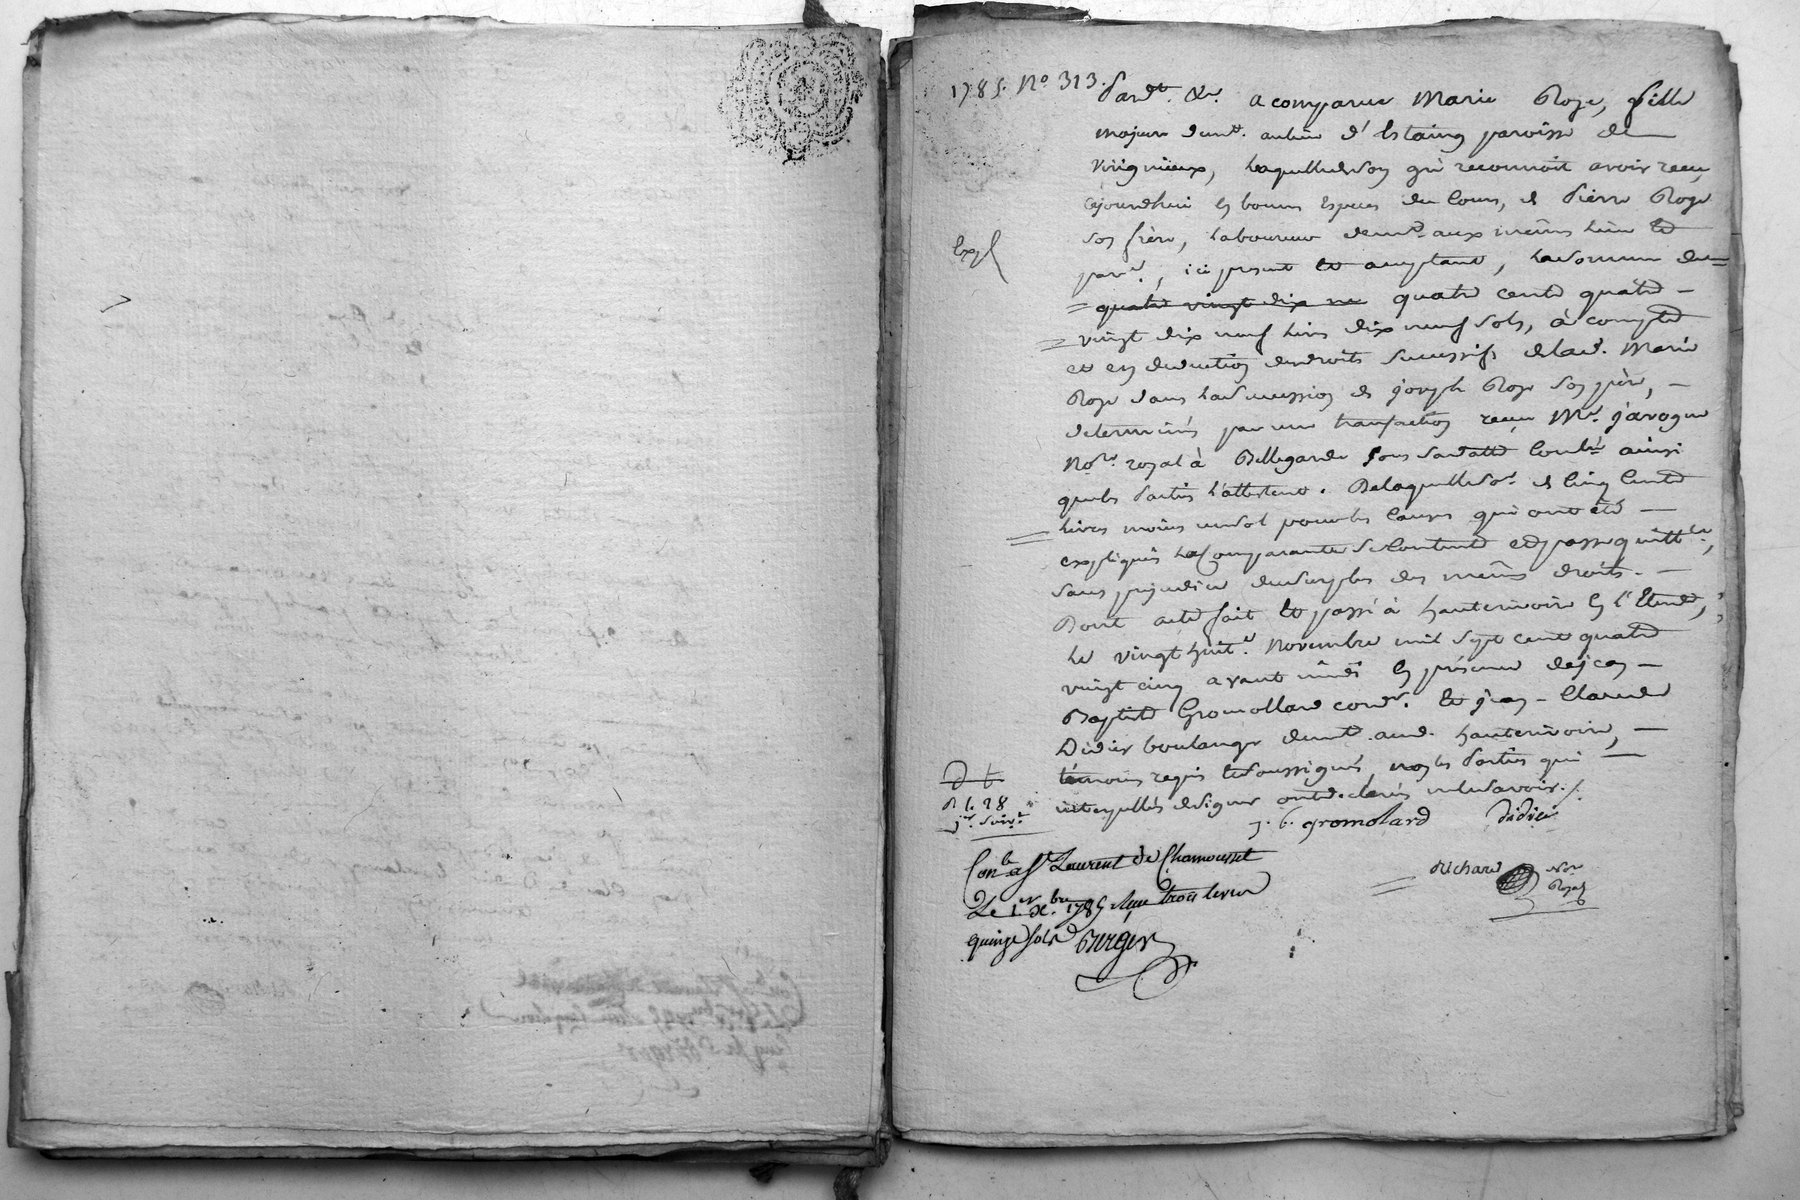 1785. N.º 313.
Pardt. &c. a comparue Marie Roze, fille
majeure demt. au lieu d'Estaing paroisse de
Virignieux, laquelle de son gré reconnoit avoir recu
cejourdhui en bonnes especes du cours, de Pierre Roze
son frère, laboureur demt. aux mêmes lieu et
Expé
parse, ici present et acceptant, la somme de
quatre vingt dix ne quatre cents quatre
vingt dix neuf livres dix neuf sols, à compte
et en deduction des droits successifs de lad. Marie
Roze dans la succession de joseph Roze son père,
determinés par une transaction recue Me. javogue
Nore. royal à Bellegarde sous sa datte Contlée ainsi
que les parties l'attestent. De laquelle so.e de Cinq Cents
livres moins un sol pour les causes qui ont été
expliquées la Comparante se Contente et passe quittce,
sans prejudice du surplus des mêmes droits.
Dont acte fait et passé à hauterivoire En l'Etude,
le vingt huite. Novembre mil sept cent quatre
vingt cinq avant midi En présence de jean
Baptiste Gromollard cordr. et jean Claude
Didier boulanger demt. aud. hauterivoire,
témoins requis et soussignés, non les Parties qui
interpellés de signer ont declarés ne le savoir./.
D t
R l. 28
jr. suivt.
j. b. gromolard Didier
Conlé a St Laurent de Chamousset
Le 1er. xbre. 1785 Reçu trois livres
quinze sols Burger
Richard Nore Royal